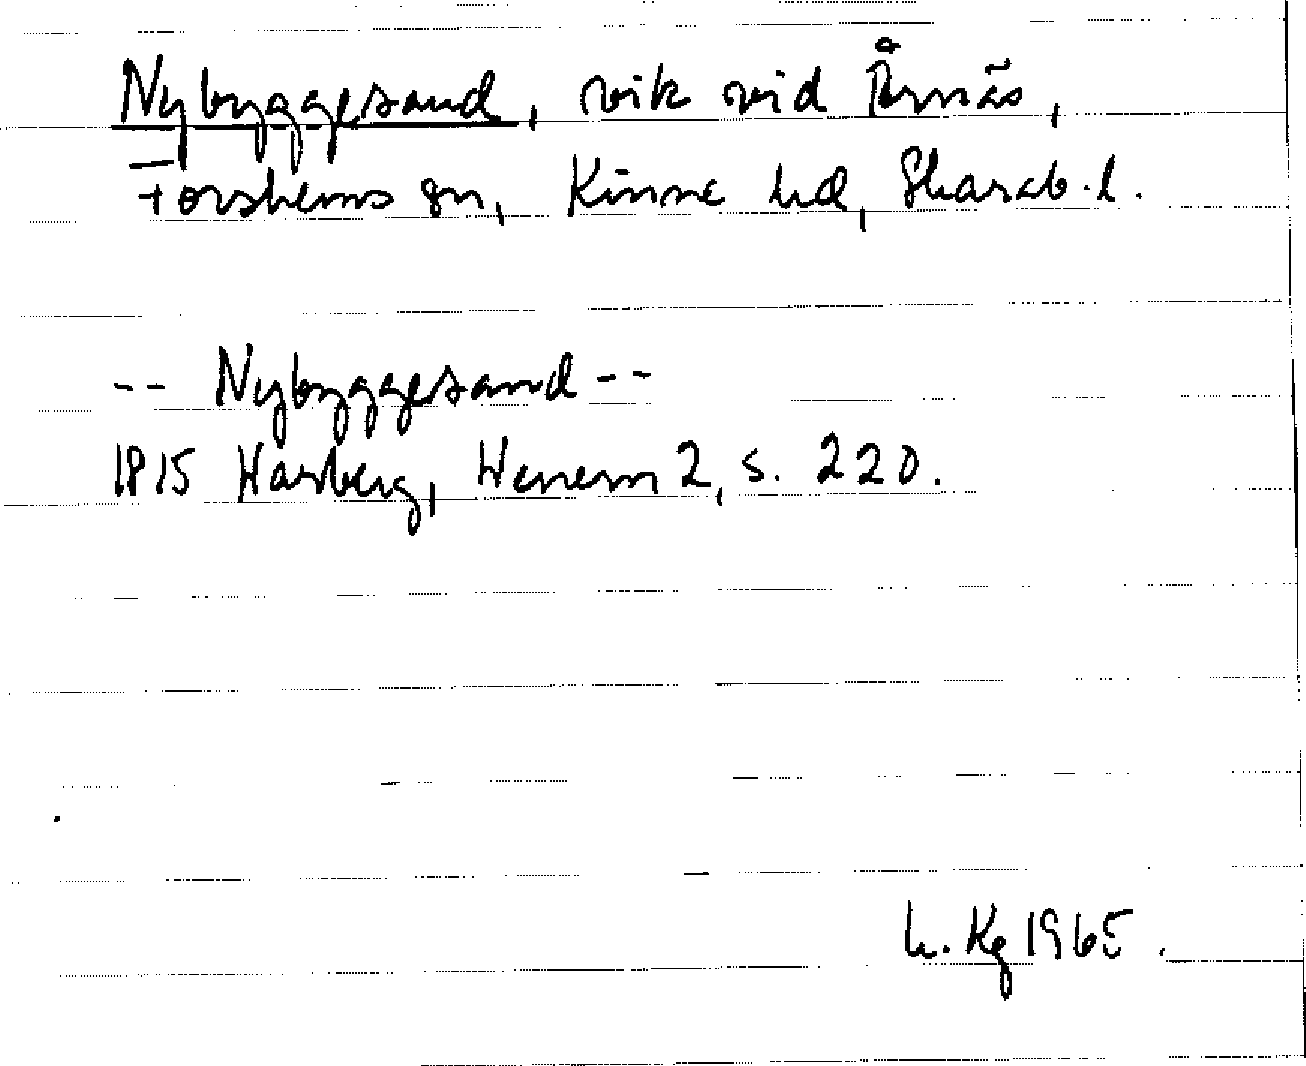 Nybyggesand, vik vid Årnäs,
Forshems sn, Kinne hd, Skarab. l.
-- Nybyggesand --
1815 Warberg, Wenern 2, s. 220.
h. Kg 1965.